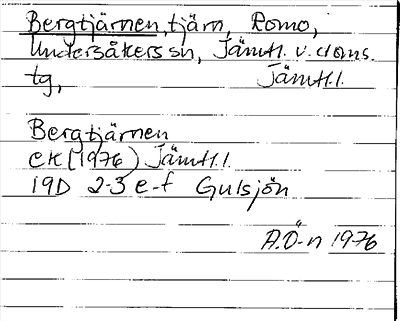 Bergtjärnen, tjärn, Romo,
Undersåkers sn, Jämtl. v. doms.
tg, Jämtl.l.
Bergtjärnen
EK (1976) Jämtl.l.
19D 2-3 e-f Gulsjön
A.Ö-n 1976